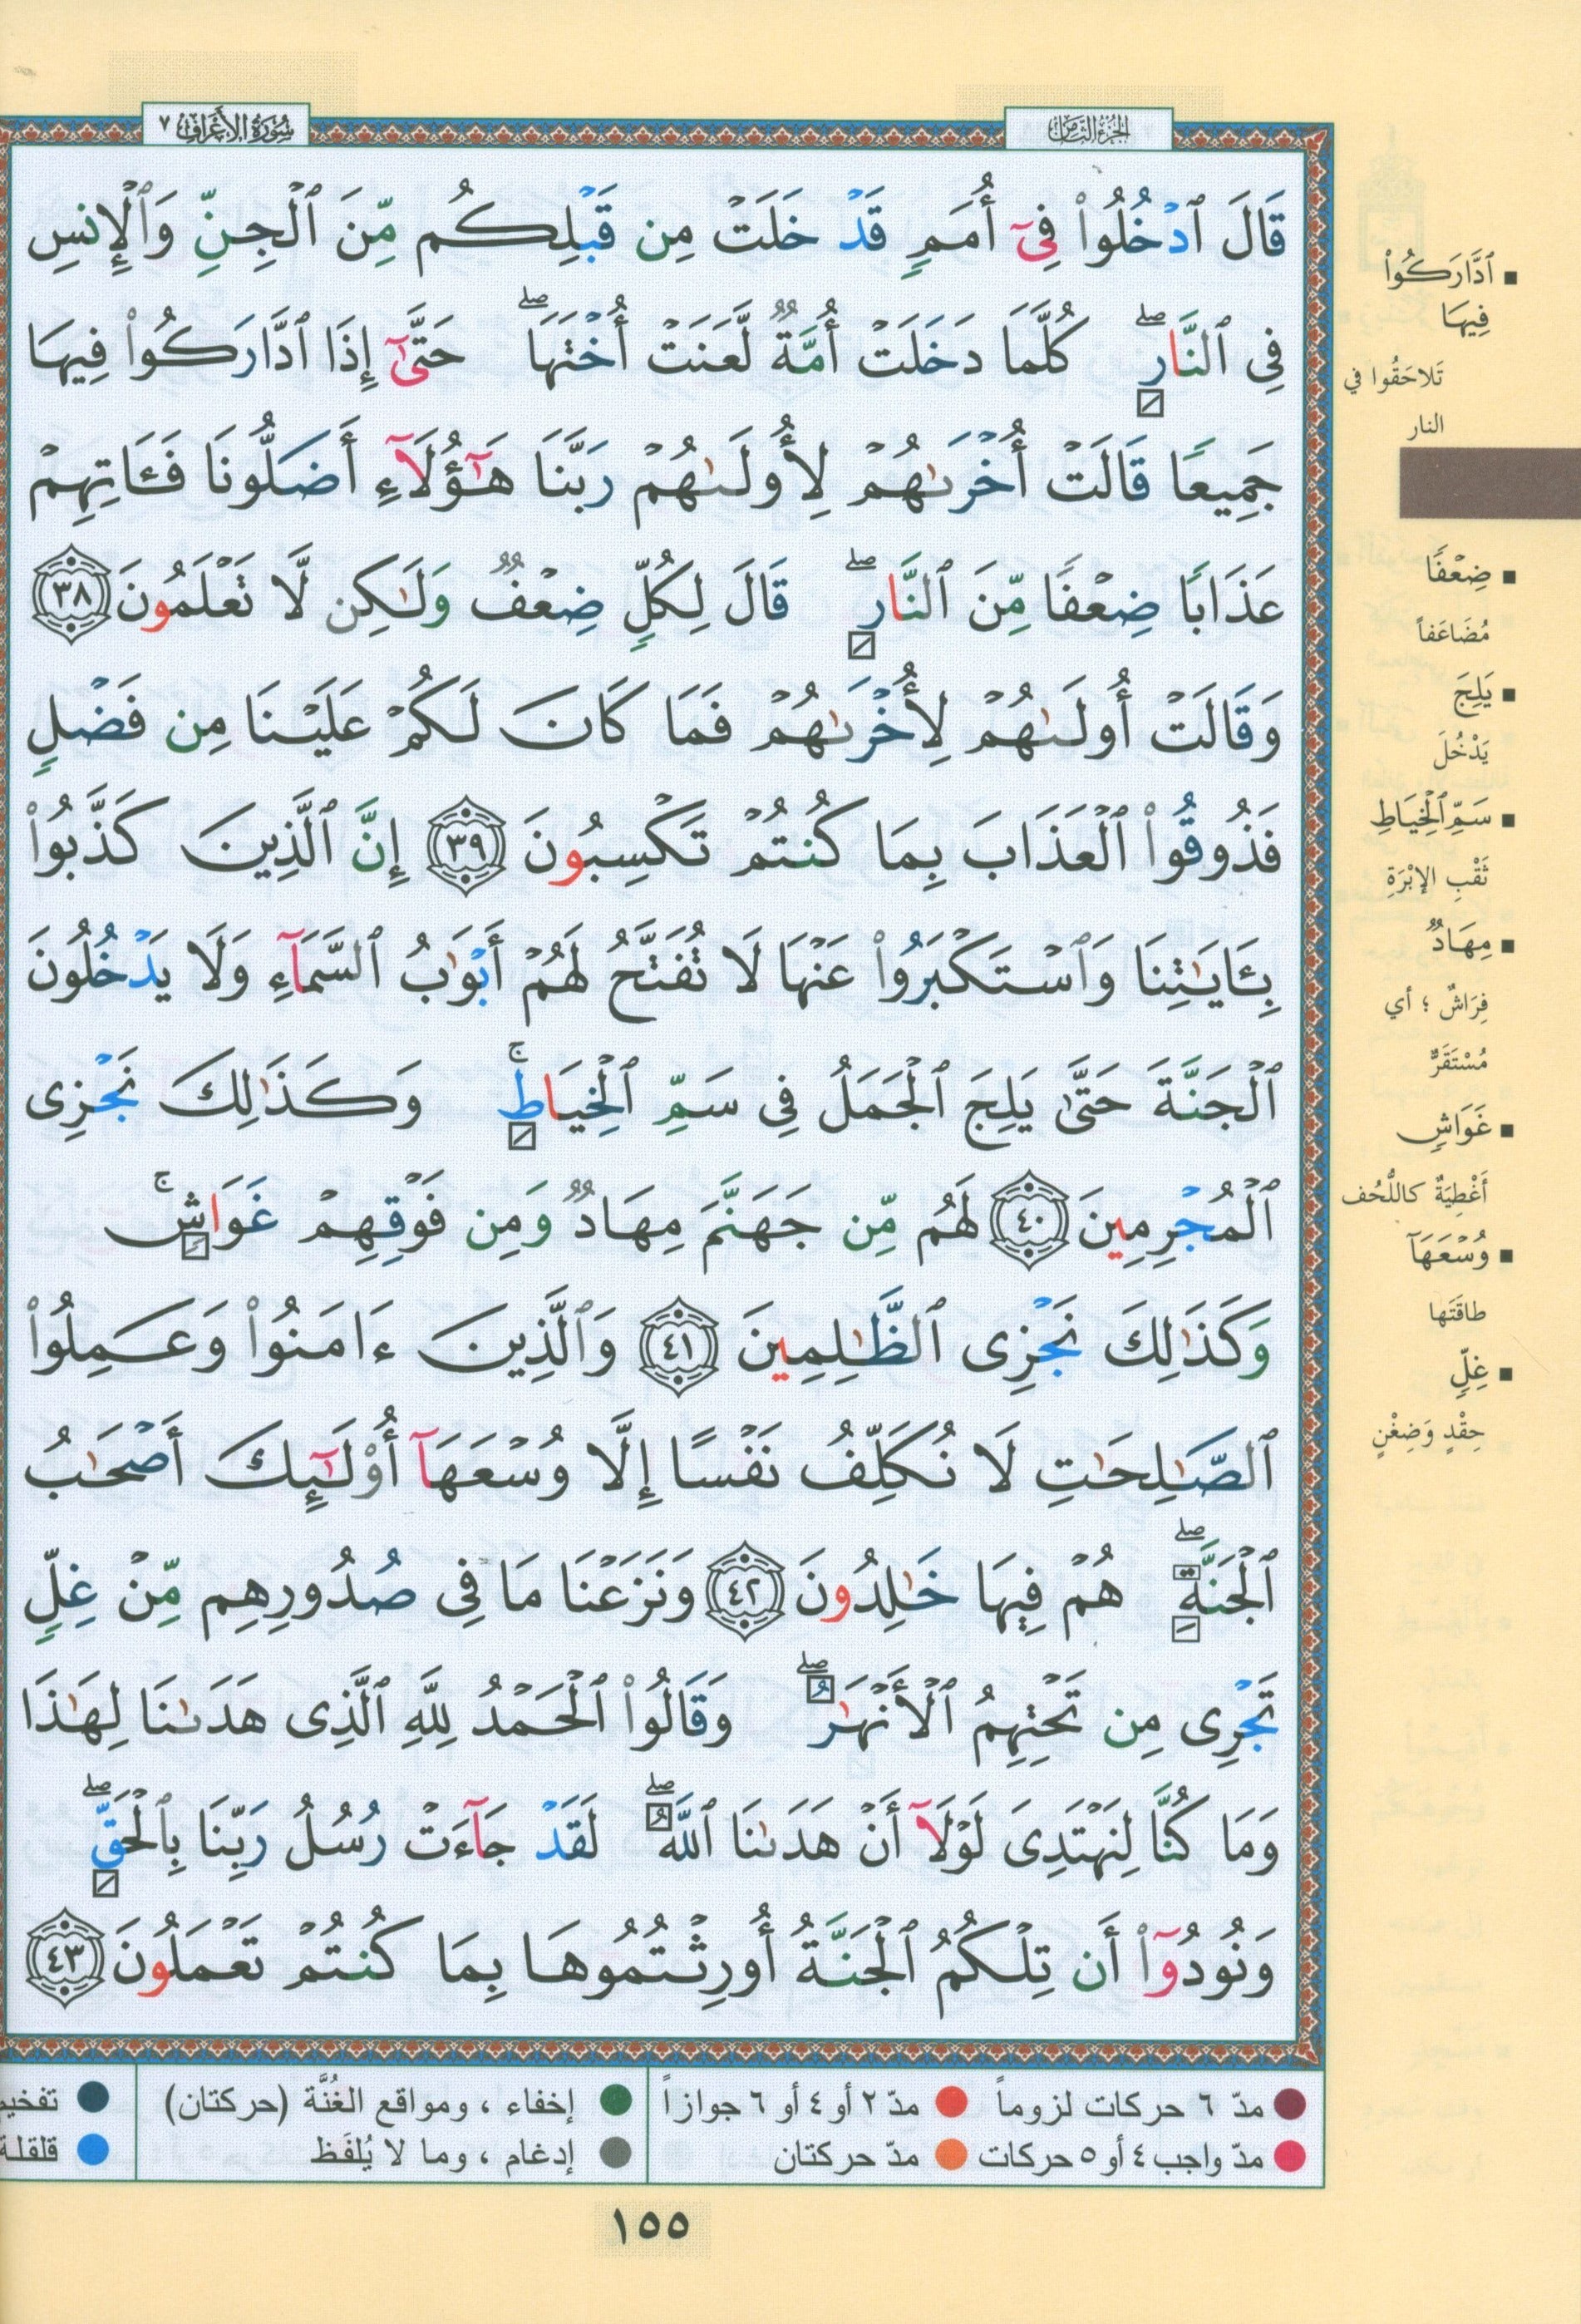 الجزء الثامن
سورة الأعراف ٧
قَالَ ٱدْخُلُوا۟ فِىٓ أُمَمٍ قَدْ خَلَتْ مِن قَبْلِكُم مِّنَ ٱلْجِنِّ وَٱلْإِنسِ
فِى ٱلنَّارِ ۖ كُلَّمَا دَخَلَتْ أُمَّةٌ لَّعَنَتْ أُخْتَهَا ۖ حَتَّىٰٓ إِذَا ٱدَّارَكُوا۟ فِيهَا
جَمِيعًا قَالَتْ أُخْرَىٰهُمْ لِأُولَىٰهُمْ رَبَّنَا هَٰٓؤُلَآءِ أَضَلُّونَا فَـَٔاتِهِمْ
عَذَابًا ضِعْفًا مِّنَ ٱلنَّارِ ۖ قَالَ لِكُلٍّ ضِعْفٌ وَلَٰكِن لَّا تَعْلَمُونَ ٣٨
وَقَالَتْ أُولَىٰهُمْ لِأُخْرَىٰهُمْ فَمَا كَانَ لَكُمْ عَلَيْنَا مِن فَضْلٍ
فَذُوقُوا۟ ٱلْعَذَابَ بِمَا كُنتُمْ تَكْسِبُونَ ٣٩ إِنَّ ٱلَّذِينَ كَذَّبُوا۟
بِـَٔايَٰتِنَا وَٱسْتَكْبَرُوا۟ عَنْهَا لَا تُفَتَّحُ لَهُمْ أَبْوَٰبُ ٱلسَّمَآءِ وَلَا يَدْخُلُونَ
ٱلْجَنَّةَ حَتَّىٰ يَلِجَ ٱلْجَمَلُ فِى سَمِّ ٱلْخِيَاطِ ۚ وَكَذَٰلِكَ نَجْزِى
ٱلْمُجْرِمِينَ ٤٠ لَهُم مِّن جَهَنَّمَ مِهَادٌ وَمِن فَوْقِهِمْ غَوَاشٍ ۚ
وَكَذَٰلِكَ نَجْزِى ٱلظَّٰلِمِينَ ٤١ وَٱلَّذِينَ ءَامَنُوا۟ وَعَمِلُوا۟
ٱلصَّٰلِحَٰتِ لَا نُكَلِّفُ نَفْسًا إِلَّا وُسْعَهَآ أُو۟لَٰٓئِكَ أَصْحَٰبُ
ٱلْجَنَّةِ ۖ هُمْ فِيهَا خَٰلِدُونَ ٤٢ وَنَزَعْنَا مَا فِى صُدُورِهِم مِّنْ غِلٍّ
تَجْرِى مِن تَحْتِهِمُ ٱلْأَنْهَٰرُ ۖ وَقَالُوا۟ ٱلْحَمْدُ لِلَّهِ ٱلَّذِى هَدَىٰنَا لِهَٰذَا
وَمَا كُنَّا لِنَهْتَدِىَ لَوْلَآ أَنْ هَدَىٰنَا ٱللَّهُ ۖ لَقَدْ جَآءَتْ رُسُلُ رَبِّنَا بِٱلْحَقِّ ۖ
وَنُودُوٓا۟ أَن تِلْكُمُ ٱلْجَنَّةُ أُورِثْتُمُوهَا بِمَا كُنتُمْ تَعْمَلُونَ ٤٣
ٱدَّارَكُوا۟
فِيهَا
تَلاحَقُوا في
النار
ضِعْفًا
مُضَاعَفاً
يَلِجَ
يَدْخُلَ
سَمِّ ٱلْخِيَاطِ
ثَقْبِ الإبْرَةِ
مِهَادٌ
فِرَاشٌ ؛ أي
مُسْتَقَرٌّ
غَوَاشٍ
أَغْطِيَةٌ كاللُّحُف
وُسْعَهَآ
طاقَتَها
غِلٍّ
حِقْدٍ وَضِغْنٍ
مدّ ٦ حركات لزوماً
مدّ ٢ أو ٤ أو ٦ جوازاً
إخفاء ، ومواقع الغُنَّة (حركتان)
تفخيم
مدّ واجب ٤ أو ٥ حركات
مدّ حركتان
إدغام ، وما لا يُلفَظ
قلقلة
١٥٥